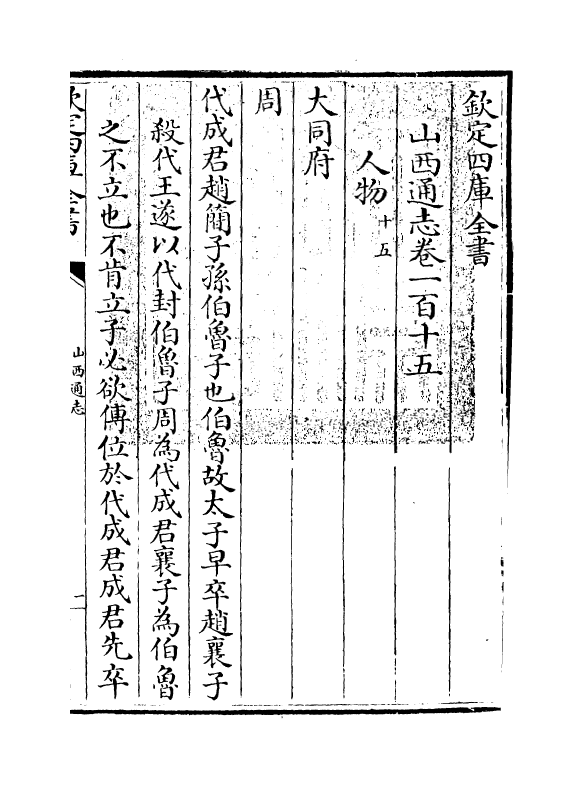 欽定四庫全書
山西通志卷一百十五
人物十五
大同府
周
代成君趙簡子孫伯魯子也伯魯故太子早卒趙襄子
殺代王遂以代封伯魯子周為代成君襄子為伯魯
之不立也不肯立子必欲傳位於代成君成君先卒
欽定四庫全書
山西通志